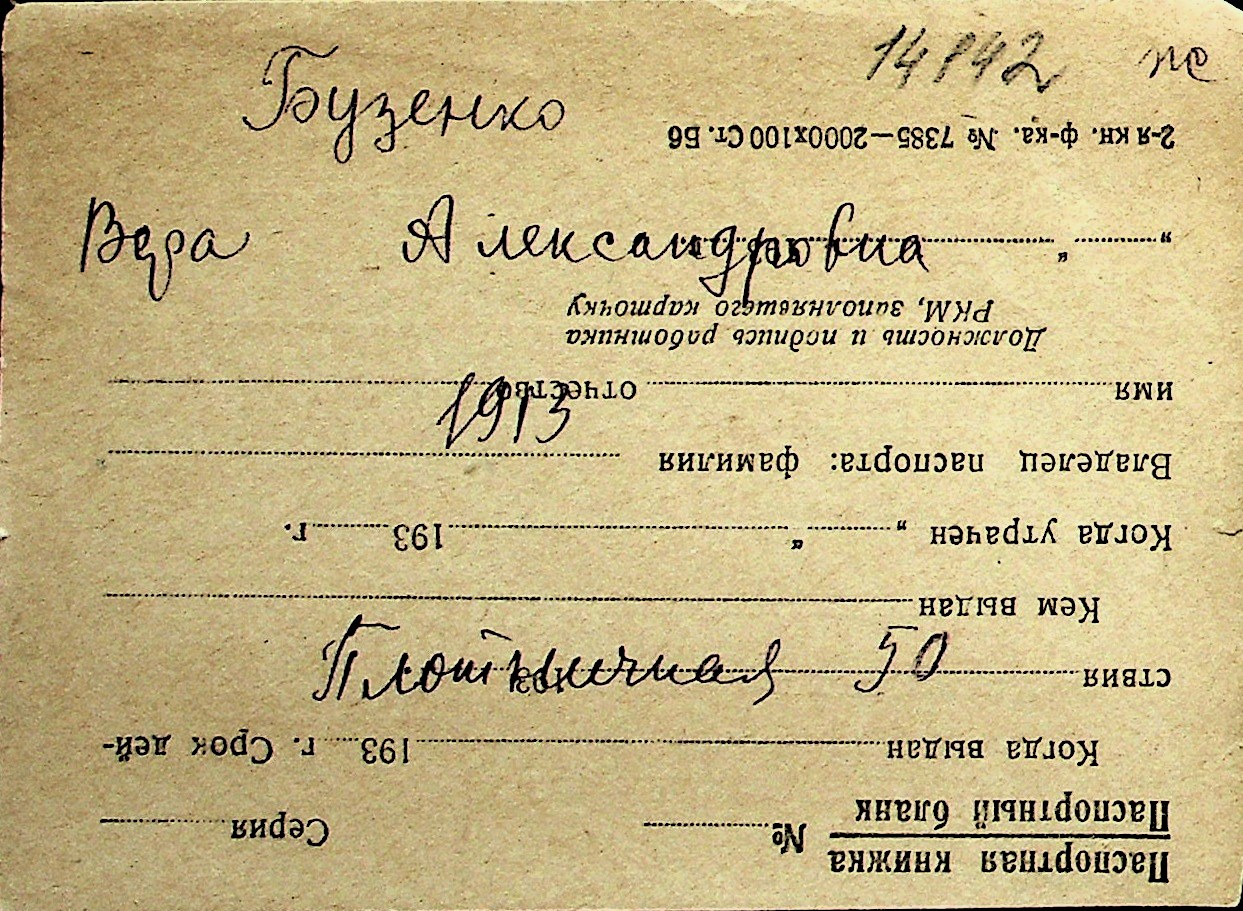 14842 пе
Бузенко
Вера Александровна
1913
Плотничная 50
Паспортная книжка
Паспортный бланк
№ Серия
Когда выдан 193 г. Срок дей-
ствия 193
Кем выдан
Когда утрачен „ “ 193 г.
Владелец паспорта: фамилия
имя отчество
Должность и подпись работника
РКМ, заполнявшего карточку
„ “
2-я кн. ф-ка. № 7385—2000х100 Ст. Б6